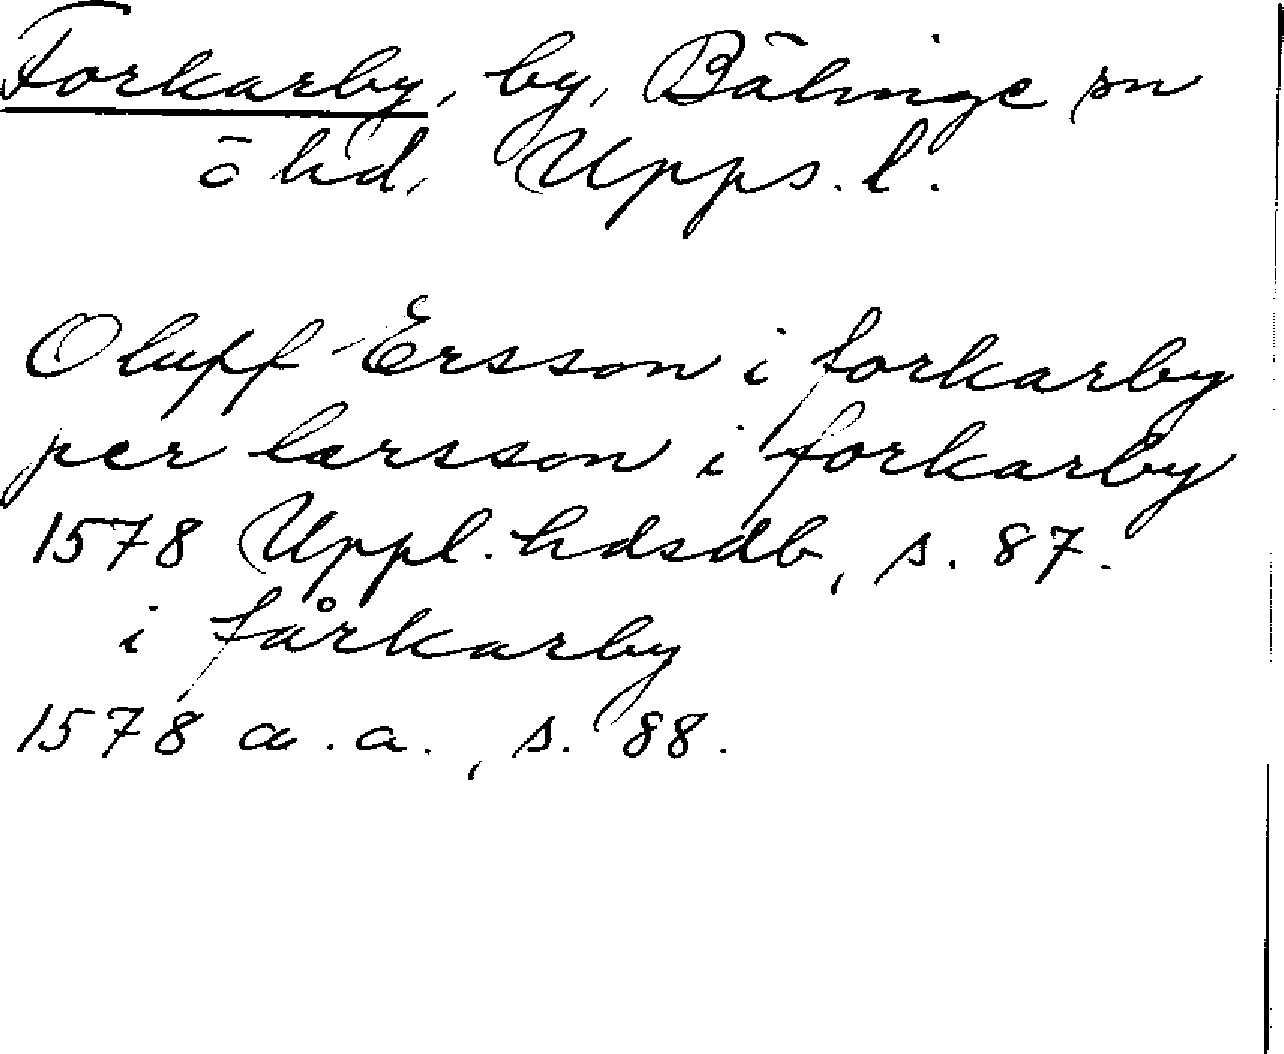 Forkarby, by, Bälinge sn
ö hd, Upps. l.
Oluff Ersson i forkarby
per larsson i forkarby
1578 Uppl. hdsdb, s. 87.
i fårkarby
1578 a.a., s. 88.